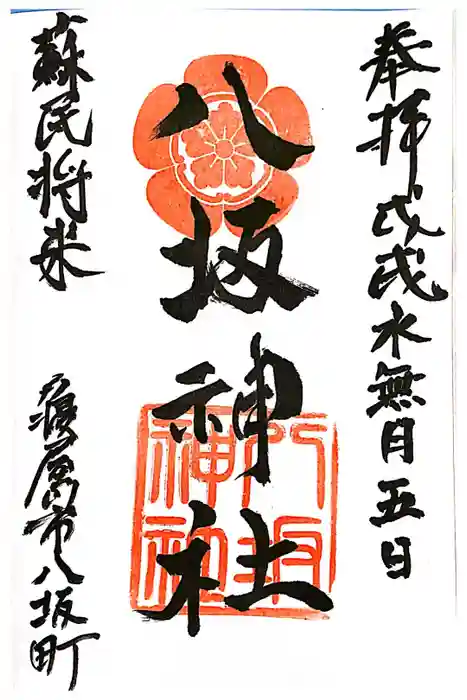 奉拝 戊戌水無月五日
八坂神社
八坂神社
蘇民将来
市八坂町